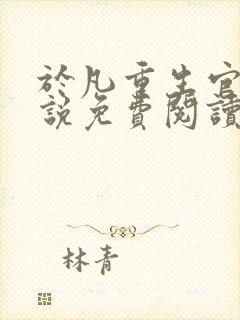 於凡重生官
說免費閱讀
林青